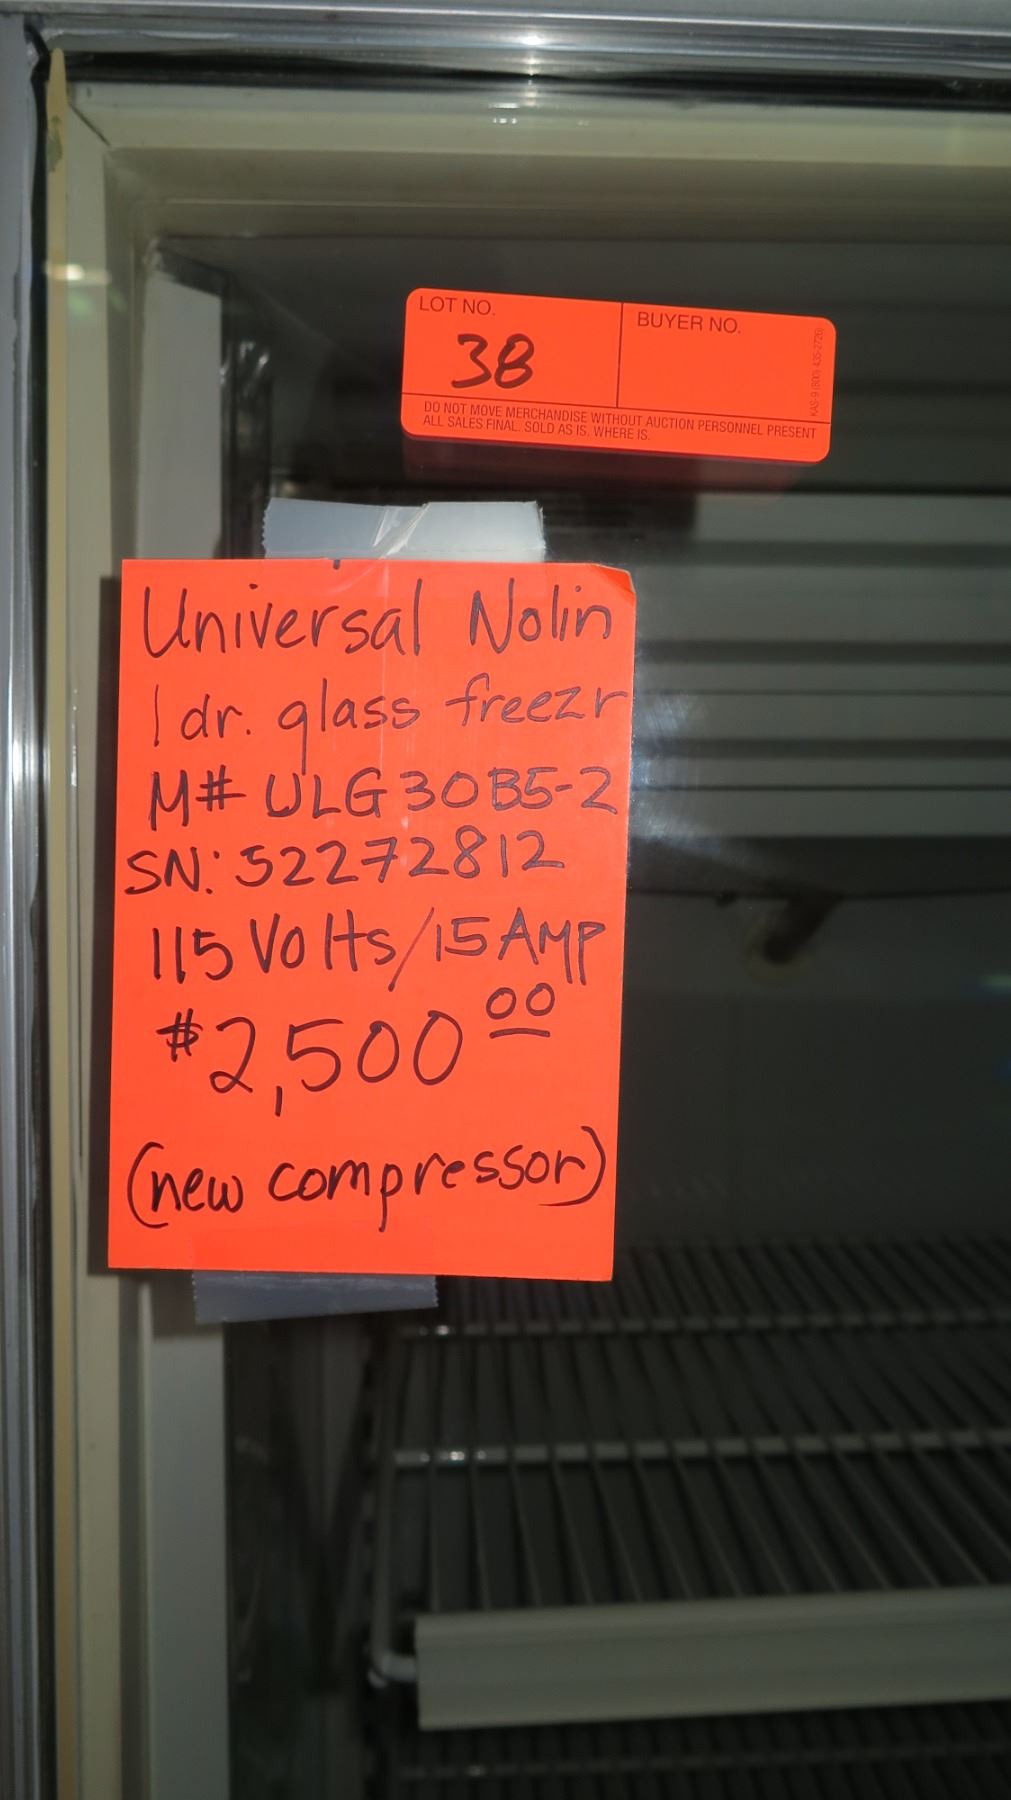 LOT NO.
38
BUYER NO.
KAS-9 (800) 435-2726)
DO NOT MOVE MERCHANDISE WITHOUT AUCTION PERSONNEL PRESENT
ALL SALES FINAL. SOLD AS IS. WHERE IS.
Universal Nolin
1 dr. glass freezr
M# ULG30B5-2
SN: 52272812
115 Volts/15 AMP
$2,500 00
(new compressor)